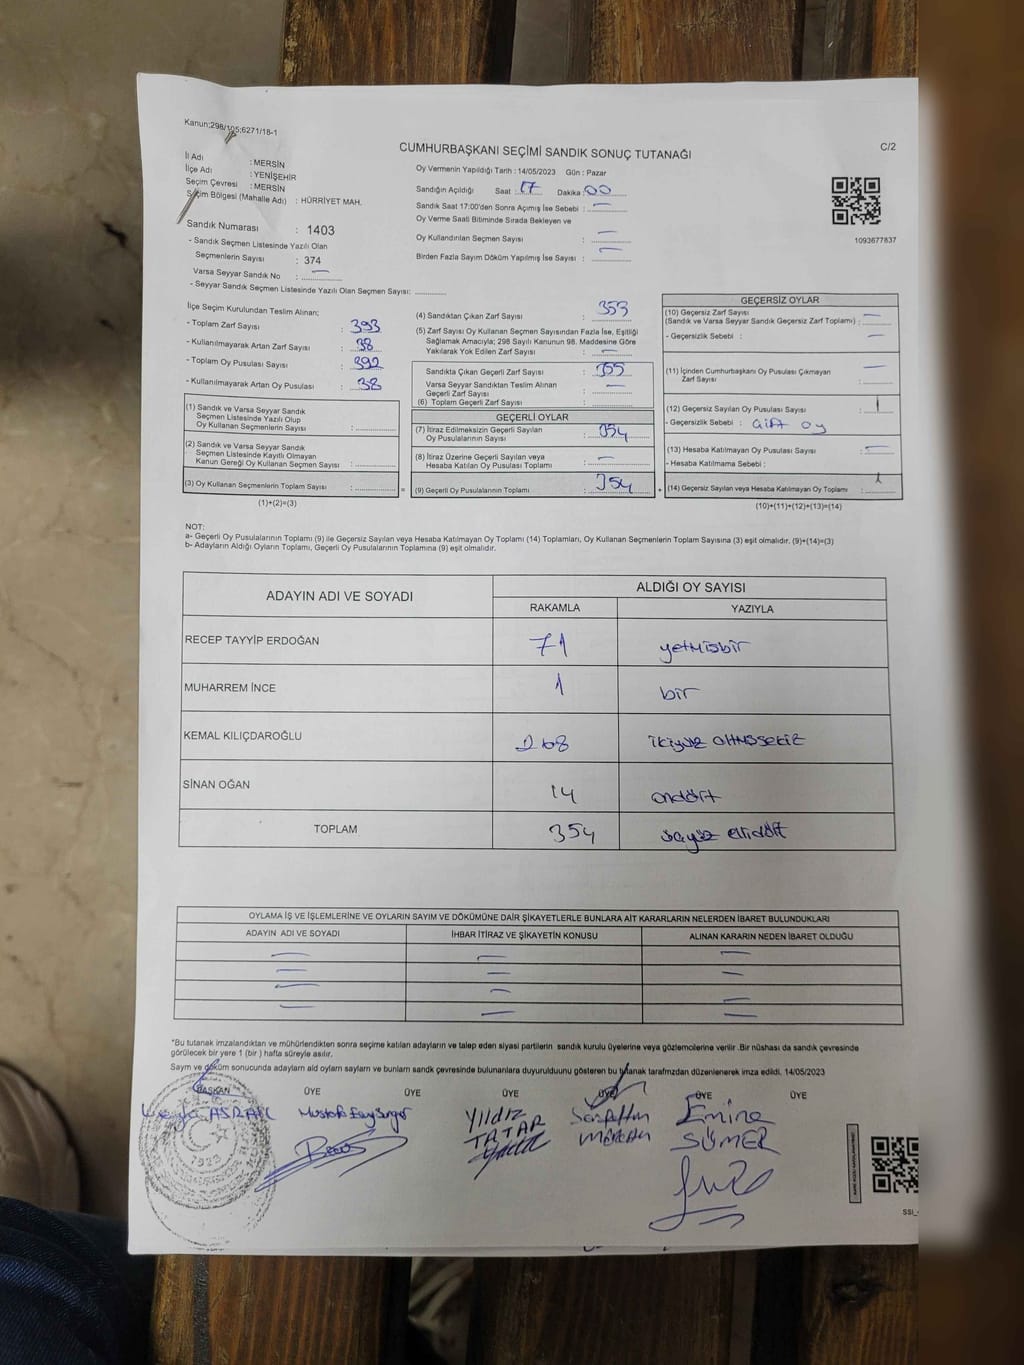 Kanun;298/105;6271/18-1
C/2
CUMHURBAŞKANI SEÇİMİ SANDIK SONUÇ TUTANAĞI
İl Adı : MERSİN
İlçe Adı : YENİŞEHİR
Seçim Çevresi : MERSİN
Seçim Bölgesi (Mahalle Adı) : HÜRRİYET MAH.
Sandık Numarası : 1403
- Sandık Seçmen Listesinde Yazılı Olan
Seçmenlerin Sayısı : 374
Varsa Seyyar Sandık No : —
- Seyyar Sandık Seçmen Listesinde Yazılı Olan Seçmen Sayısı: ..........
Oy Vermenin Yapıldığı Tarih : 14/05/2023 Gün : Pazar
Sandığın Açıldığı Saat : 17 Dakika : 00
Sandık Saat 17:00'den Sonra Açımış İse Sebebi : —
Oy Verme Saati Bitiminde Sırada Bekleyen ve
Oy Kullandırılan Seçmen Sayısı : —
Birden Fazla Sayım Döküm Yapılmış İse Sayısı : —
1093677837
İlçe Seçim Kurulundan Teslim Alınan;
- Toplam Zarf Sayısı : 393
- Kullanılmayarak Artan Zarf Sayısı : 38
- Toplam Oy Pusulası Sayısı : 392
- Kullanılmayarak Artan Oy Pusulası : 38
(1) Sandık ve Varsa Seyyar Sandık
Seçmen Listesinde Yazılı Olup
Oy Kullanan Seçmenlerin Sayısı : ..........
(2) Sandık ve Varsa Seyyar Sandık
Seçmen Listesinde Kayıtlı Olmayan
Kanun Gereği Oy Kullanan Seçmen Sayısı : ..........
(3) Oy Kullanan Seçmenlerin Toplam Sayısı : .......... =
(1)+(2)=(3)
(4) Sandıktan Çıkan Zarf Sayısı :
(5) Zarf Sayısı Oy Kullanan Seçmen Sayısından Fazla İse, Eşitliği
Sağlamak Amacıyla; 298 Sayılı Kanunun 98. Maddesine Göre
Yakılarak Yok Edilen Zarf Sayısı : —
Sandıkta Çıkan Geçerli Zarf Sayısı : 355
Varsa Seyyar Sandıktan Teslim Alınan
Geçerli Zarf Sayısı : —
(6) Toplam Geçerli Zarf Sayısı : ..........
GEÇERLİ OYLAR
(7) İtiraz Edilmeksizin Geçerli Sayılan
Oy Pusulalarının Sayısı : 354
(8) İtiraz Üzerine Geçerli Sayılan veya
Hesaba Katılan Oy Pusulası Toplamı : —
(9) Geçerli Oy Pusulalarının Toplamı : 354 +
GEÇERSİZ OYLAR
(10) Geçersiz Zarf Sayısı
(Sandık ve Varsa Seyyar Sandık Geçersiz Zarf Toplamı) : —
- Geçersizlik Sebebi : —
(11) İçinden Cumhurbaşkanı Oy Pusulası Çıkmayan
Zarf Sayısı : —
(12) Geçersiz Sayılan Oy Pusulası Sayısı : 1
- Geçersizlik Sebebi : Çift oy
(13) Hesaba Katılmayan Oy Pusulası Sayısı : —
- Hesaba Katılmama Sebebi :
(14) Geçersiz Sayılan veya Hesaba Katılmayan Oy Toplamı : 1
(10)+(11)+(12)+(13)=(14)
NOT:
a- Geçerli Oy Pusulalarının Toplamı (9) ile Geçersiz Sayılan veya Hesaba Katılmayan Oy Toplamı (14) Toplamları, Oy Kullanan Seçmenlerin Toplam Sayısına (3) eşit olmalıdır. (9)+(14)=(3)
b- Adayların Aldığı Oyların Toplamı, Geçerli Oy Pusulalarının Toplamına (9) eşit olmalıdır.
ADAYIN ADI VE SOYADI
ALDIĞI OY SAYISI
RAKAMLA YAZIYLA
RECEP TAYYİP ERDOĞAN 71 yetmişbir
MUHARREM İNCE 1 bir
KEMAL KILIÇDAROĞLU 268 ikiyüz altmışsekiz
SİNAN OĞAN 14 ondört
TOPLAM 354 üçyüz ellidört
OYLAMA İŞ VE İŞLEMLERİNE VE OYLARIN SAYIM VE DÖKÜMÜNE DAİR ŞİKAYETLERLE BUNLARA AİT KARARLARIN NELERDEN İBARET BULUNDUKLARI
ADAYIN ADI VE SOYADI İHBAR İTİRAZ VE ŞİKAYETİN KONUSU ALINAN KARARIN NEDEN İBARET OLDUĞU
*Bu tutanak imzalandıktan ve mühürlendikten sonra seçime katılan adayların ve talep eden siyasi partilerin sandık kurulu üyelerine veya gözlemcilerine verilir .Bir nüshası da sandık çevresinde
görülecek bir yere 1 (bir ) hafta süreyle asılır.
Sayım ve döküm sonucunda adayların aldığı oyların sayıları ve bunların sandık çevresinde bulunanlara duyurulduunu gösteren bu tutanak tarafımızdan düzenlenerek imza edildi. 14/05/2023
BAŞKAN ÜYE ÜYE ÜYE ÜYE ÜYE ÜYE
Mustafa
YILDIZ TATAR
Emine SÜMER
1923